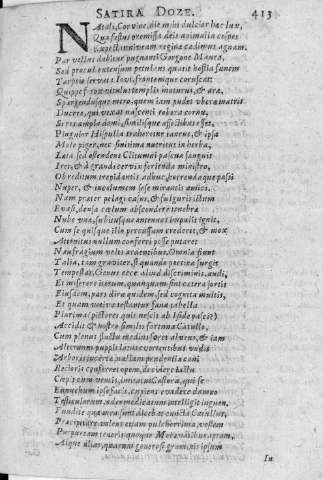 SATIRA DOZE. 413
Natali, Corvine, die mihi dulcior hæc lux,
Qua festus promissa deis animalia cespes
Expectat: niveam regina cædimus agnam.
Par vellus dabitur pugnanti Gorgone Maura,
Sed procul extensum petulans quatit hostia funem
Tarpeio servata Iovi, frontemque coruscat:
Quippe ferox vitulus templis maturus, & aræ,
Spargendusque mero, quem iam pudet ubera matris
Ducere, qui vexat nascenti robora cornu.
Si res ampla domi, similisque affectibus esset,
Pinguior Hispulla traheretur taurus, & ipsa
Mole piger, nec finitima nutritus in herba,
Læta sed ostendens Clitumni pascua sanguis
Iret, & à grandi cervix ferienda ministro,
Ob reditum trepidantis adhuc, horrendaque passi
Nuper, & incolumem sese mirantis amici.
Nam præter pelagi casus, & fulguris ictum
Evasi, densæ cælum abscondere tenebræ
Nube una, subitusque antennas impulit ignis,
Cum se quisque illo percussum crederet, & mox
Attonitus nullum conferri posse putaret
Naufragium velis ardentibus. Omnia fiunt
Talia, tam graviter, si quando poetica surgit
Tempestas. Genus ecce aliud discriminis, audi,
Et miserere iterum, quanquam sint cætera sortis
Eiusdem, pars dira quidem, sed cognita multis,
Et quam votiva testantur fana tabella
Plurima: (pictores quis nescit ab Iside pasci?)
Accidit & nostro similis fortuna Catullo,
Cum plenus fluctu medius foret alveus, & iam
Alternum puppis latus evertentibus undis
Arboris incertæ, nullam prudentia cani
Rectoris conferret opem, decidere iactu
Cœpit cum ventis, imitatus Castora, qui se
Eunuchum ipse facit, cupiens evadere damno
Testiculorum, adeo medicatum intelligit inguen.
Fundite quæ mea sunt dicebat cuncta Catullus,
Præcipitare volens etiam pulcherrima, vestem
Purpuream teneris quoque Mæcenatibus aptam,
Atque alias, quarum generosi graminis ipsum
In